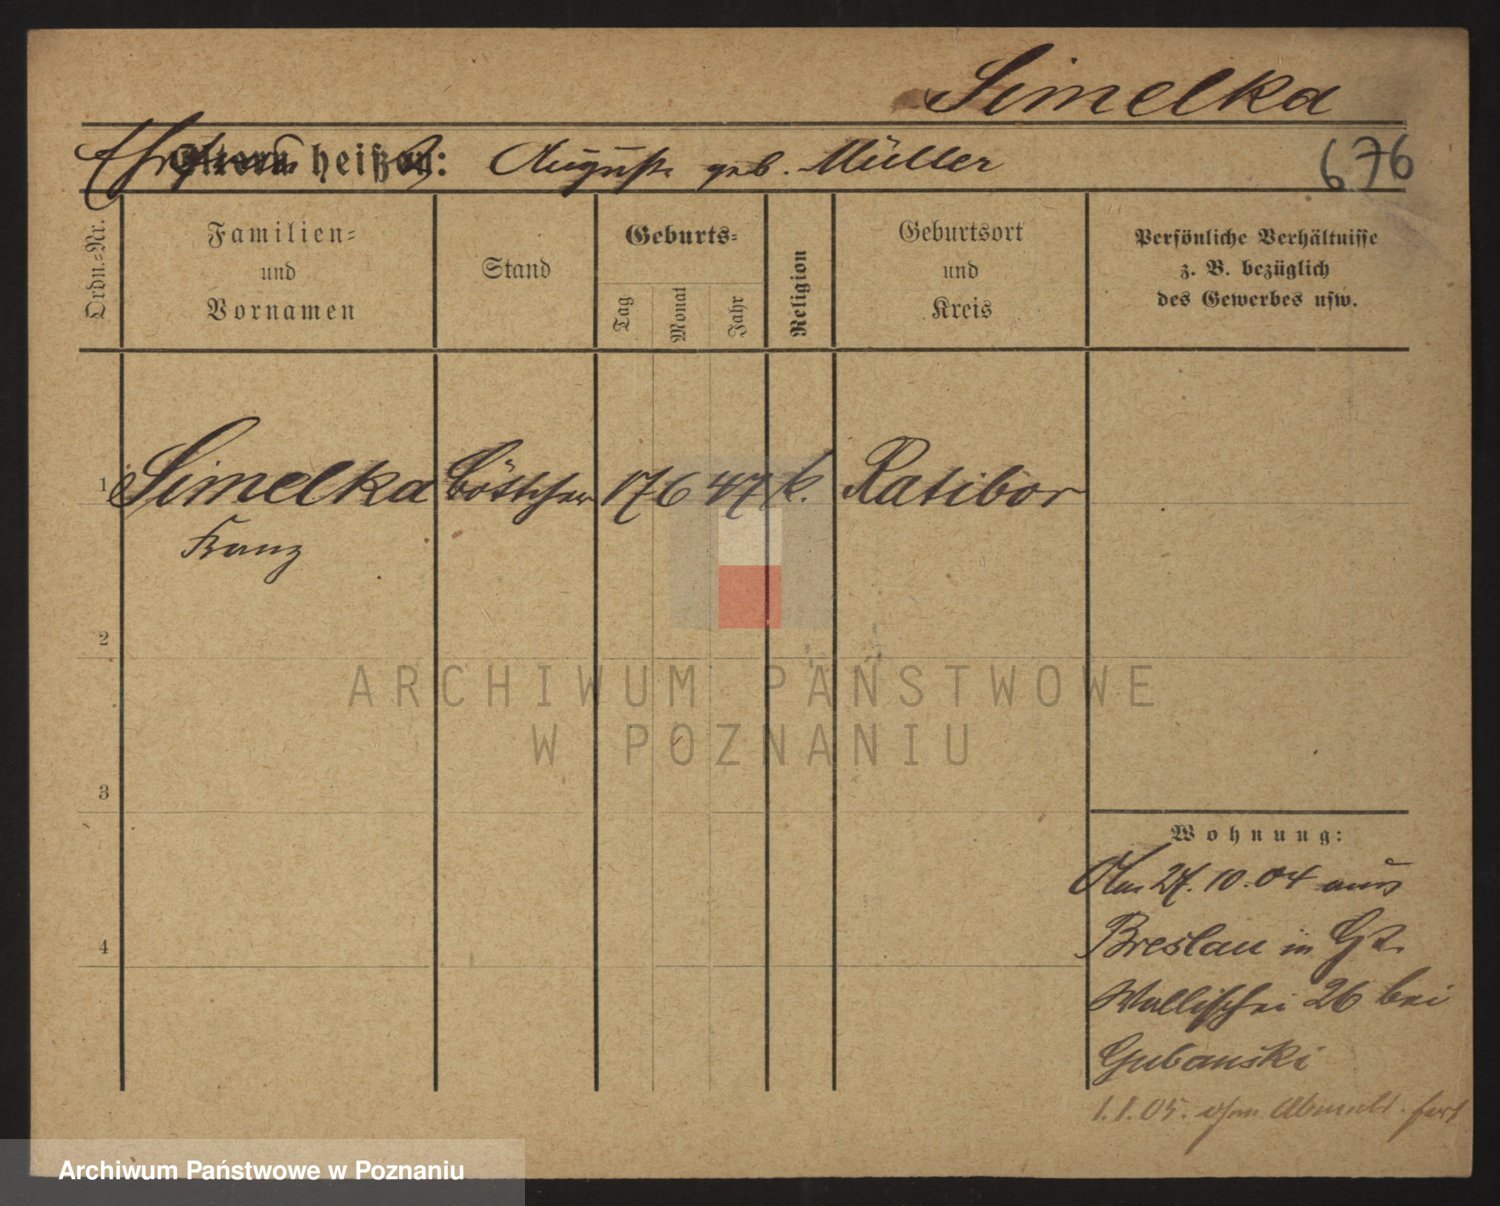 Simelka
Ehefrau
Eltern heißen: Auguste geb. Müller
676
Ordn.-Nr.
Familien-
und
Vornamen
Stand
Geburts-
Tag
Monat
Jahr
Religion
Geburtsort
und
Kreis
Persönliche Verhältnisse
z. B. bezüglich
des Gewerbes usw.
1 Simelka Böttcher 17 6 47 k. Ratibor
Franz
2
3
4
Wohnung:
Am 27. 10. 04 aus
Breslau in
Wallischei 26 bei
Gubanski
1.1.05. ohne Abmeld. fort
ARCHIWUM PAŃSTWOWE
W POZNANIU
Archiwum Państwowe w Poznaniu